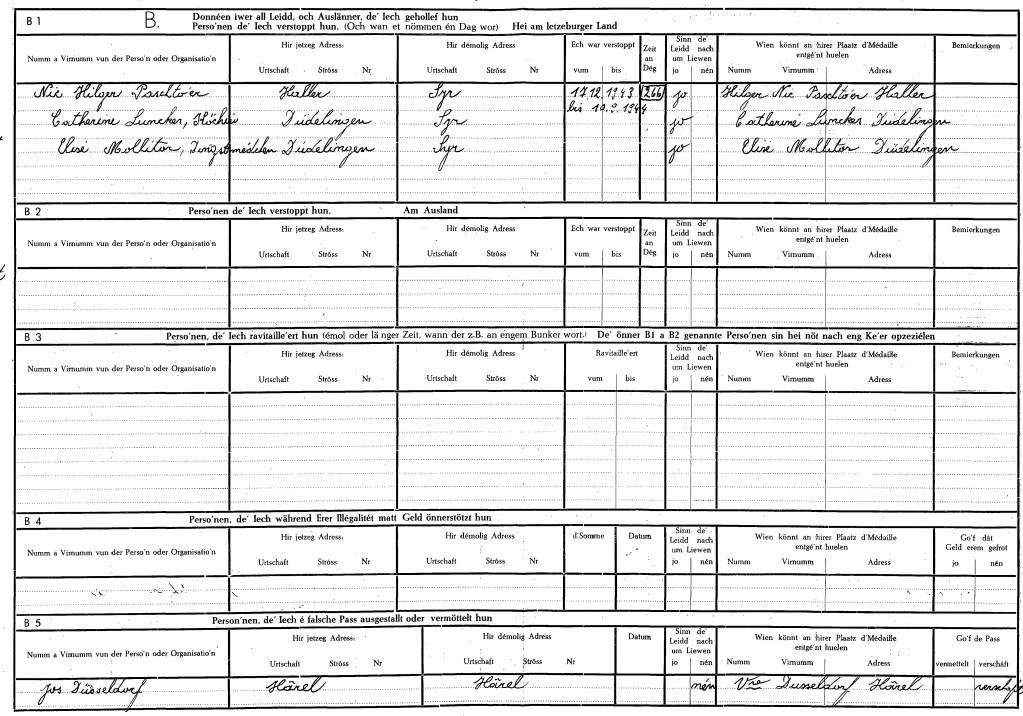 B 1 B. Donnéen iwer all Leidd, och Auslänner, de' Iech gehollef hun
Perso'nen de' Iech verstoppt hun. (Och wan et nömmen én Dag wor) Hei am letzeburger Land
Numm a Virnumm vun der Perso'n oder Organisatio'n Hir jetzeg Adress: Hir démolig Adress Ech war verstoppt Zeit an Dég Sinn de' Leidd nach um Liewen Wien könnt an hirer Plaatz d'Médaille entgé'nt huelen Bemierkungen
Urtschaft Ströss Nr Urtschaft Ströss Nr vum bis jo nén Numm Virnumm Adress
Nic Hilger Paschto'er Haller Syr 17.12.1943 266 jo Hilger Nic Paschto'er Haller
bis 10.9.1944
Catherine Luncker, Düdelingen Syr jo Catherine Luncker Düdelingen
Elise Mollitor, Düdelingen Syr jo Elise Mollitor Düdelingen
B 2 Perso'nen de' Iech verstoppt hun. Am Ausland
Numm a Virnumm vun der Perso'n oder Organisatio'n Hir jetzeg Adress: Hir démolig Adress Ech war verstoppt Zeit an Dég Sinn de' Leidd nach um Liewen Wien könnt an hirer Plaatz d'Médaille entgé'nt huelen Bemierkungen
Urtschaft Ströss Nr Urtschaft Ströss Nr vum bis jo nén Numm Virnumm Adress
B 3 Perso'nen, de' Iech ravitaille'ert hun (émol oder länger Zeit, wann der z.B. an engem Bunker wort.) De' önner B1 a B2 genannte Perso'nen sin hei nöt nach eng Ke'er opzeziélen
Numm a Virnumm vun der Perso'n oder Organisatio'n Hir jetzeg Adress: Hir démolig Adress Ravitaille'ert Sinn de' Leidd nach um Liewen Wien könnt an hirer Plaatz d'Médaille entgé'nt huelen Bemierkungen
Urtschaft Ströss Nr Urtschaft Ströss Nr vum bis jo nén Numm Virnumm Adress
B 4 Perso'nen, de' Iech während Erer Illégalitét matt Geld önnerstötzt hun
Numm a Virnumm vun der Perso'n oder Organisatio'n Hir jetzeg Adress: Hir démolig Adress d'Somme Datum Sinn de' Leidd nach um Liewen Wien könnt an hirer Plaatz d'Médaille entgé'nt huelen Go'f dât Geld erem gefrot
Urtschaft Ströss Nr Urtschaft Ströss Nr jo nén Numm Virnumm Adress jo nén
B 5 Person'nen, de' Iech é falsche Pass ausgestallt oder vermöttelt hun
Numm a Virnumm vun der Perso'n oder Organisatio'n Hir jetzeg Adress: Hir démolig Adress Datum Sinn de' Leidd nach um Liewen Wien könnt an hirer Plaatz d'Médaille entgé'nt huelen Go'f de Pass
Urtschaft Ströss Nr Urtschaft Ströss Nr jo nén Numm Virnumm Adress vermettelt verschâft
Jos Düsseldorf Hârel Hârel nén Vve Dusseldorf Hârel